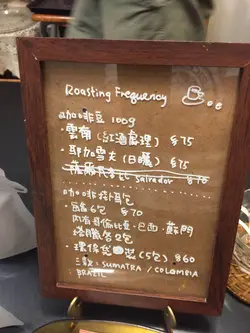 Roasting Frequency
咖啡豆 100g
・雲南 (紅酒處理) $75
・耶加雪夫 (日曬) $75
El Salvador
咖啡掛耳包
6包 $70
內有哥倫比亞、巴西、蘇門
答臘各2包
・環保 (5包) $60
三款: SUMATRA / COLOMBIA
BRAZIL